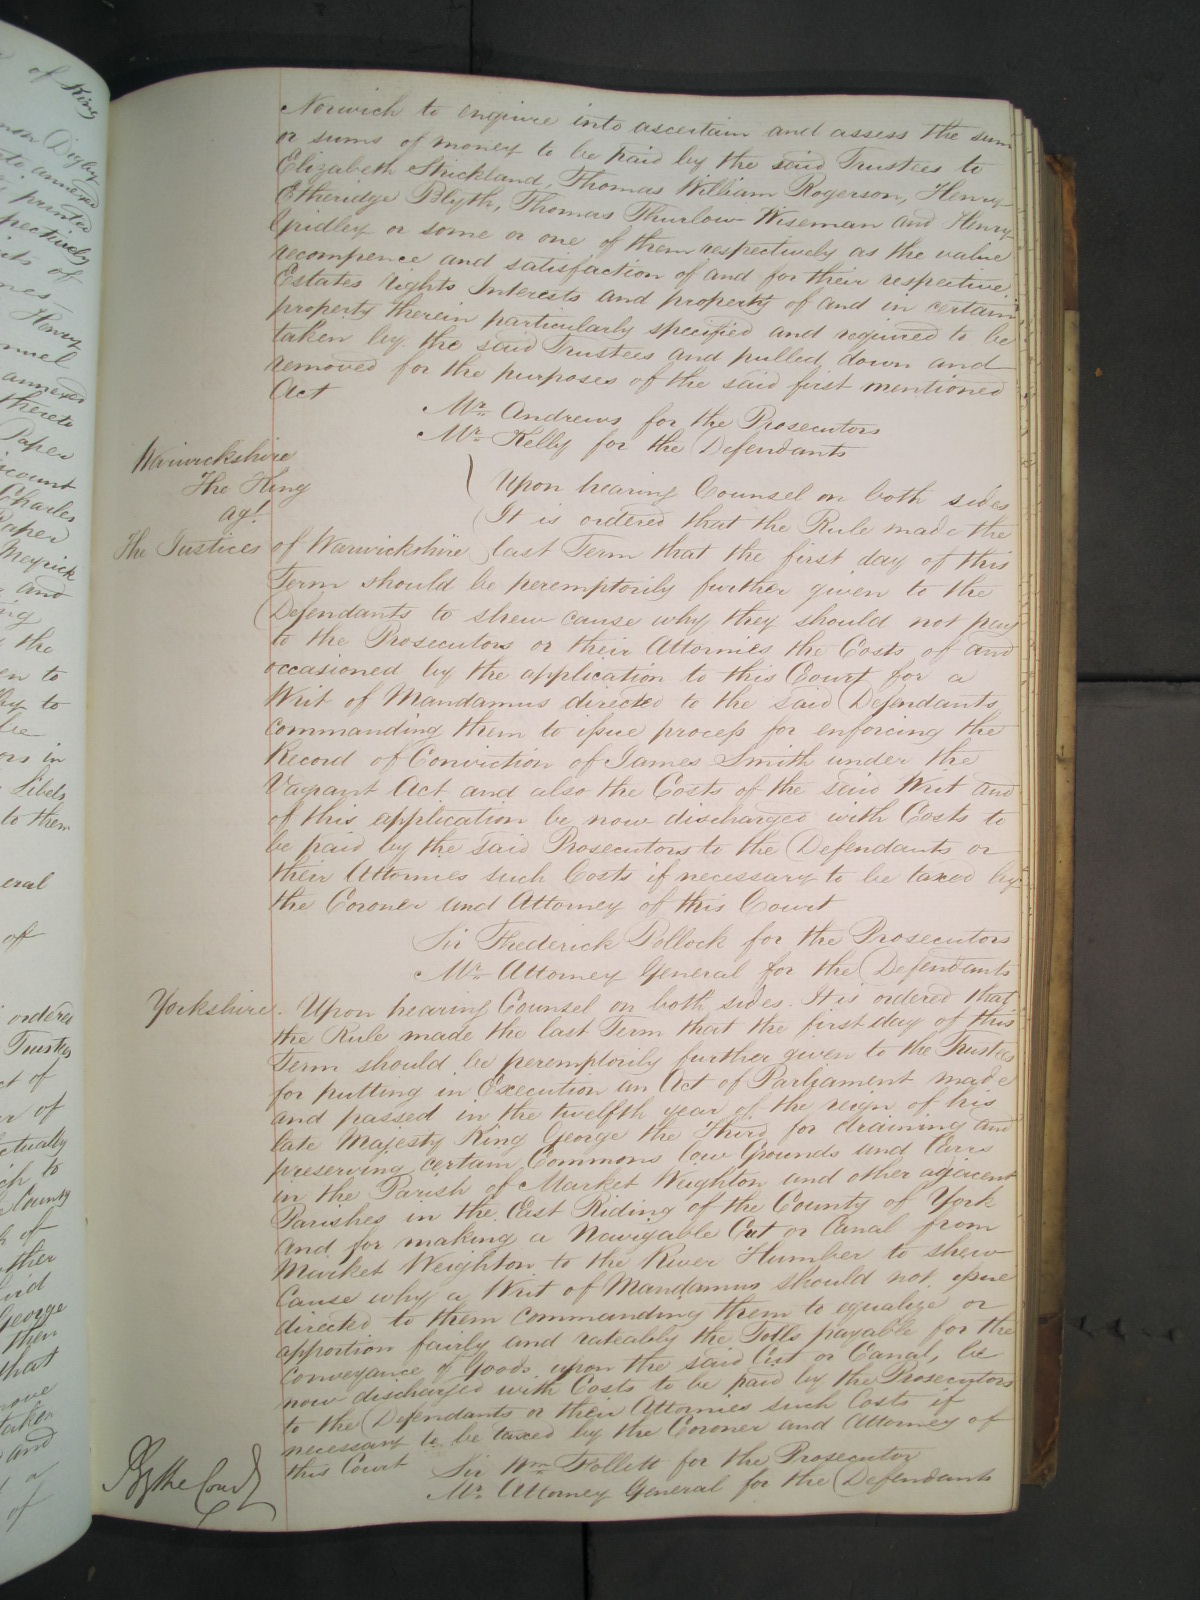 Norwich to enquire into ascertain and assess the sum
or sums of money to be paid by the said Trustees to
Elizabeth Strickland, Thomas William Rogerson, Henry
Etheridge Blyth, Thomas Thurlow Wiseman and Henry
Gridley or some or one of them respectively as the value
recompence and satisfaction of and for their respective
Estates rights Interests and property of and in certain
property therein particularly specified and required to be
taken by the said Trustees and pulled down and
removed for the purposes of the said first mentioned
Act
Mr. Andrews for the Prosecutors
Mr. Kelly for the Defendants
Warwickshire
The King
agt.
The Justices of Warwickshire
Upon hearing Counsel on both sides
It is ordered that the Rule made the
last Term that the first day of this
Term should be peremptorily further given to the
Defendants to shew cause why they should not pay
to the Prosecutors or their Attornies the Costs of and
occasioned by the application to this Court for a
Writ of Mandamus directed to the said Defendants
commanding them to issue process for enforcing the
Record of Conviction of James Smith under the
Vagrant Act and also the Costs of the said Writ and
of this application be now discharged with Costs to
be paid by the said Prosecutors to the Defendants or
their Attornies such Costs if necessary to be taxed by
the Coroner and Attorney of this Court
Sir Frederick Pollock for the Prosecutors
Mr. Attorney General for the Defendants
Yorkshire. Upon hearing Counsel on both sides. It is ordered that
the Rule made the last Term that the first day of this
Term should be peremptorily further given to the Trustees
for putting in Execution an Act of Parliament made
and passed in the twelfth year of the reign of his
late Majesty King George the Third for draining and
preserving certain Commons low Grounds and Carrs
in the Parish of Market Weighton and other adjacent
Parishes in the East Riding of the County of York
and for making a Navigable Cut or Canal from
Market Weighton to the River Humber to shew
Cause why a Writ of Mandamus should not issue
directed to them commanding them to equalize or
apportion fairly and rateably the Tolls payable for the
conveyance of Goods upon the said Cut or Canal, be
now discharged with Costs to be paid by the Prosecutors
to the Defendants or their Attornies such Costs if
necessary to be taxed by the Coroner and Attorney of
this Court
Sir Wm. Follett for the Prosecutor
Mr. Attorney General for the Defendants
By the Court